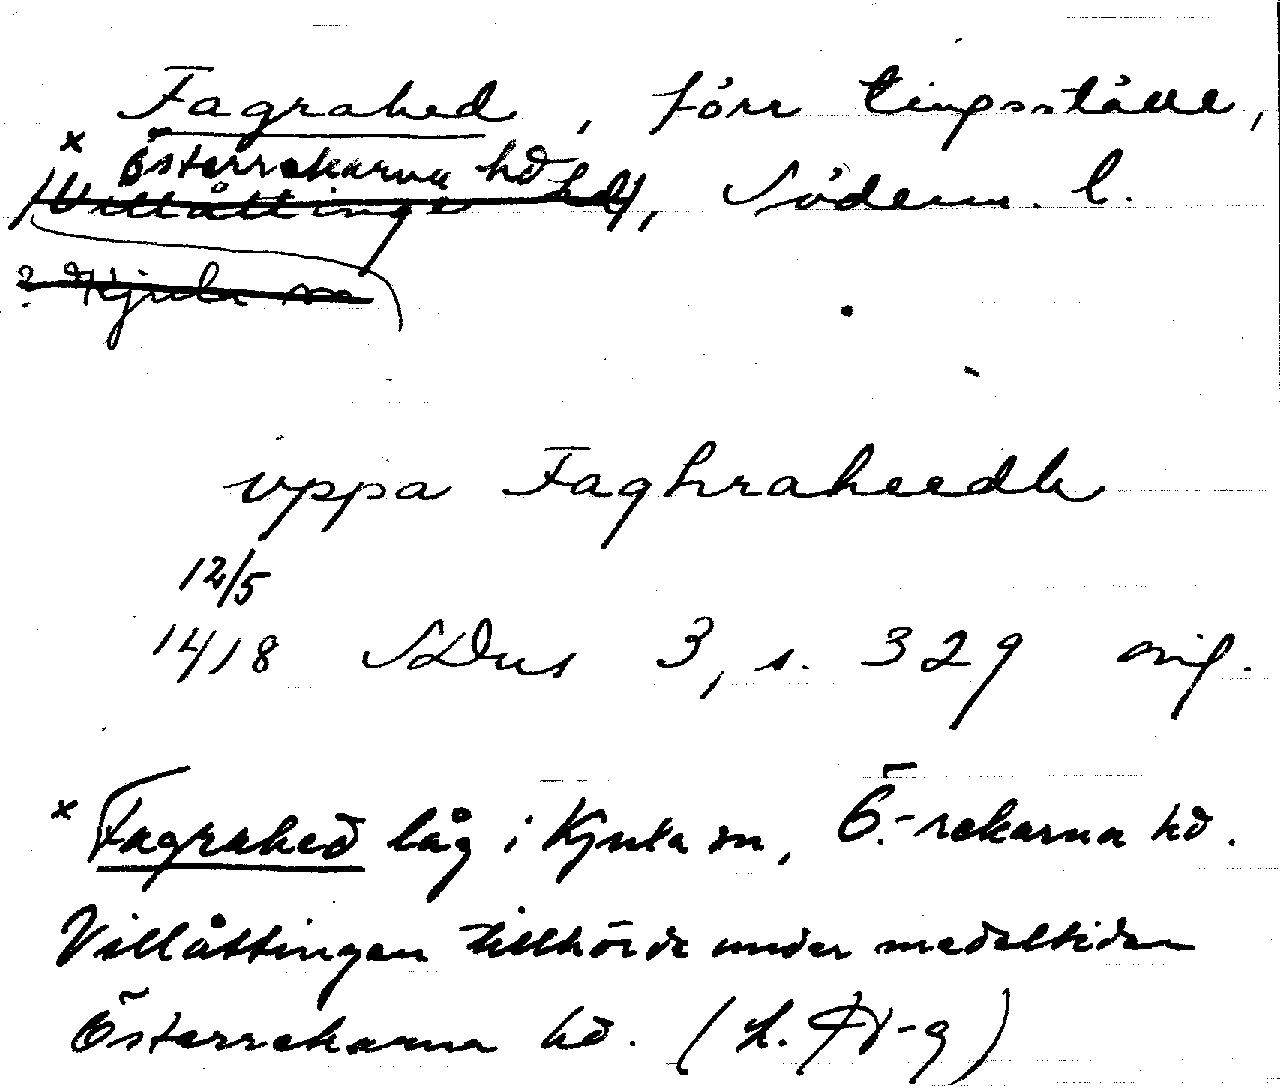 Fagrahed, förr tingsställe,
x Österrekarna hd
(Villåttinge hd), Söderm. l.
? Kjula sn
uppa Faghraheedh
12/5
1418 SDns 3, s. 329 orig.
x Fagrahed låg i Kjula sn, Ö.-rekarna hd.
Villåttingen tillhörde under medeltiden
Österrekarna hd. (